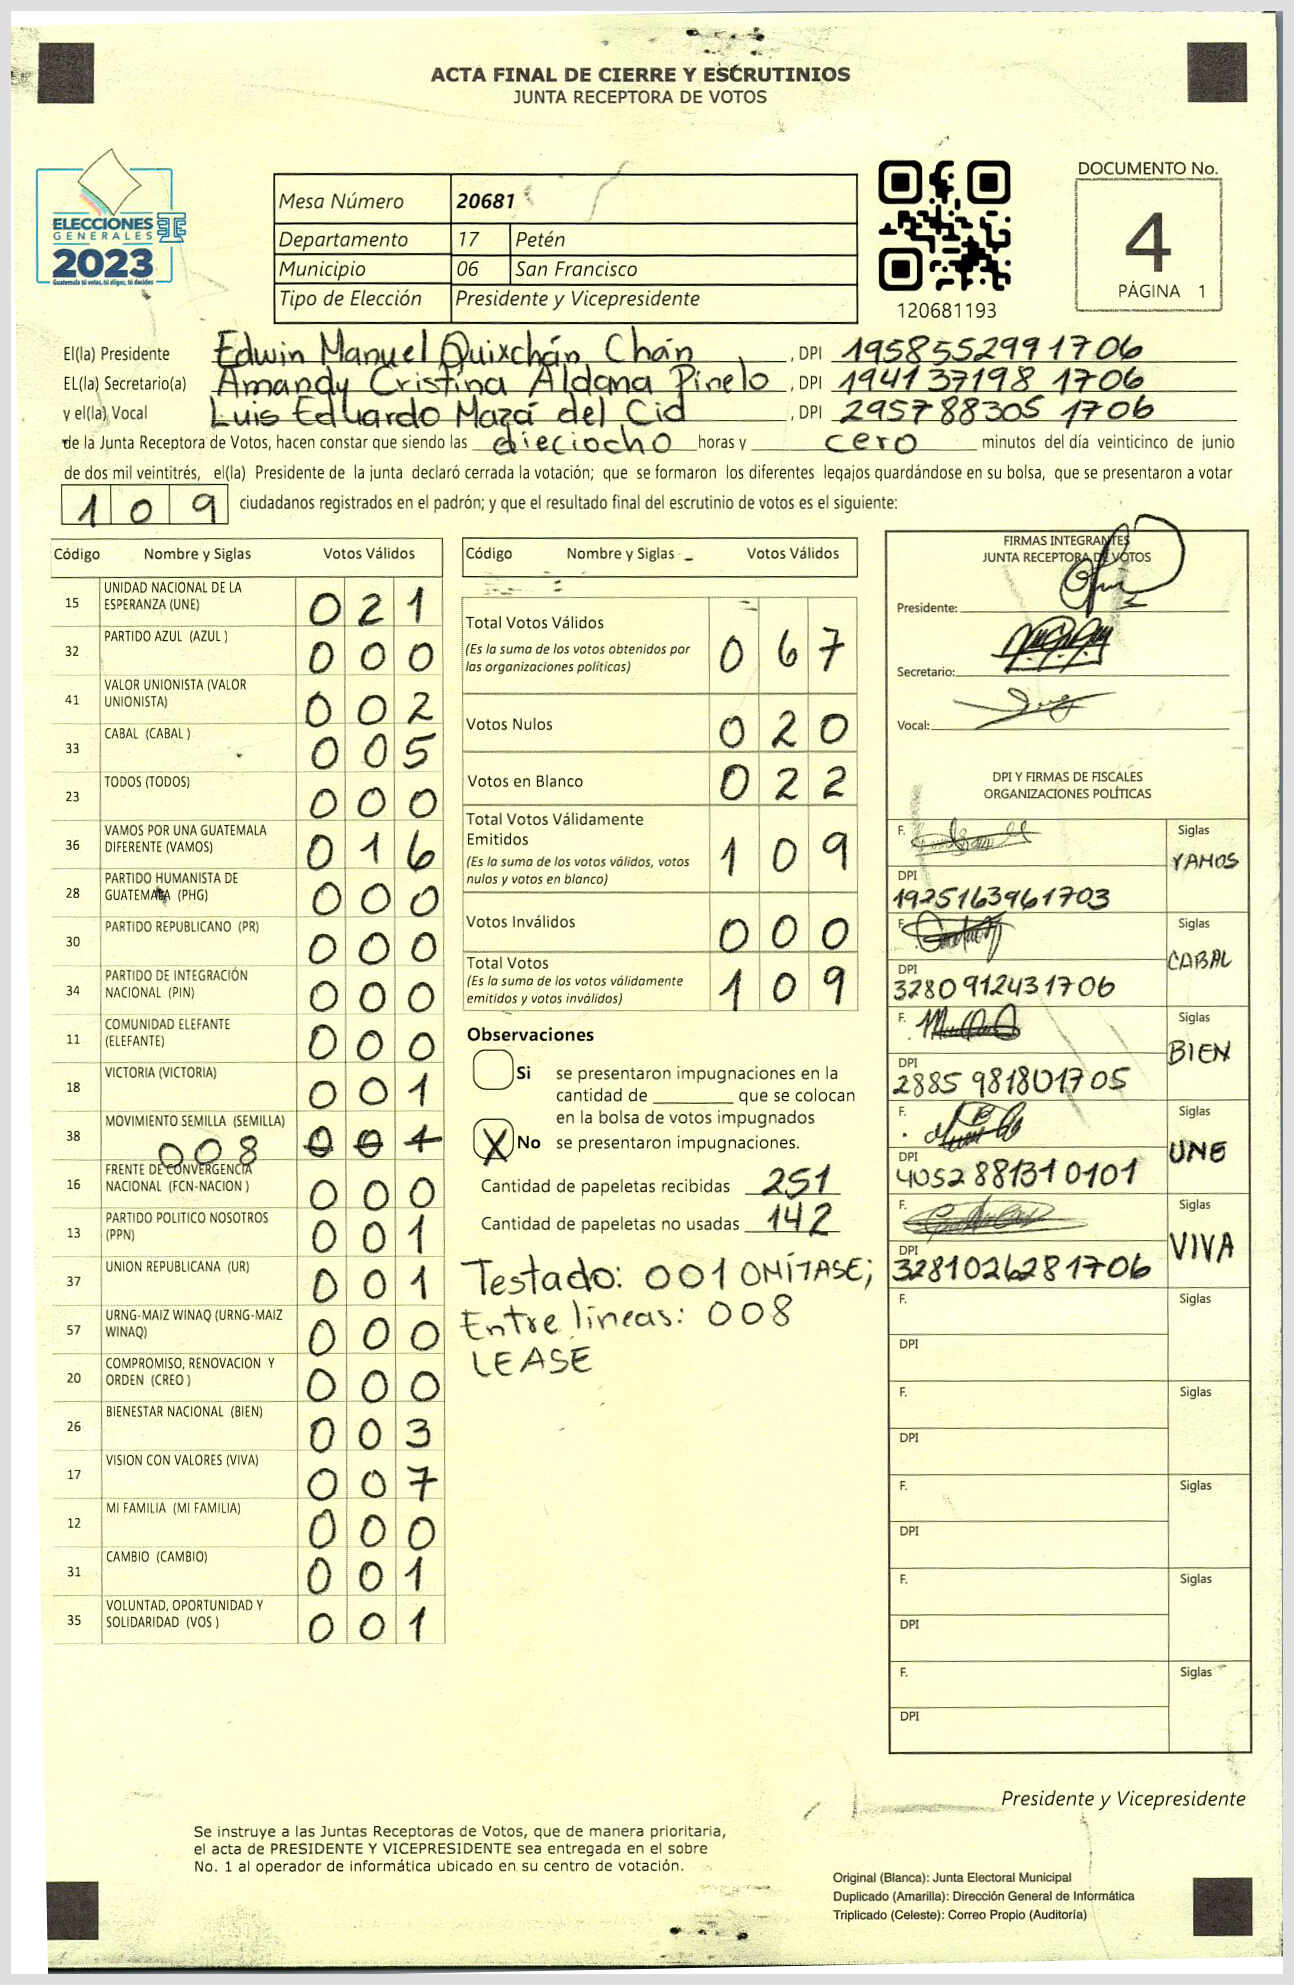 ACTA FINAL DE CIERRE Y ESCRUTINIOS
JUNTA RECEPTORA DE VOTOS
ELECCIONES
GENERALES
2023
Guatemala tú votas, tú eliges, tú decides
Mesa Número 20681
Departamento 17 Petén
Municipio 06 San Francisco
Tipo de Elección Presidente y Vicepresidente
120681193
DOCUMENTO No.
4
PÁGINA 1
El(la) Presidente Edwin Manuel Quixchán Chán, DPI 1958552991706
EL(la) Secretario(a) Amandy Cristina Aldana Pinelo, DPI 194137198 1706
y el(la) Vocal Luis Eduardo Mazá del Cid, DPI 295788305 1706
de la Junta Receptora de Votos, hacen constar que siendo las dieciocho horas y cero minutos del día veinticinco de junio
de dos mil veintitrés, el(la) Presidente de la junta declaró cerrada la votación; que se formaron los diferentes legajos guardándose en su bolsa, que se presentaron a votar
109 ciudadanos registrados en el padrón; y que el resultado final del escrutinio de votos es el siguiente:
Código Nombre y Siglas Votos Válidos
15 UNIDAD NACIONAL DE LA ESPERANZA (UNE) 021
32 PARTIDO AZUL (AZUL ) 000
41 VALOR UNIONISTA (VALOR UNIONISTA) 002
33 CABAL (CABAL ) 005
23 TODOS (TODOS) 000
36 VAMOS POR UNA GUATEMALA DIFERENTE (VAMOS) 016
28 PARTIDO HUMANISTA DE GUATEMALA (PHG) 000
30 PARTIDO REPUBLICANO (PR) 000
34 PARTIDO DE INTEGRACIÓN NACIONAL (PIN) 000
11 COMUNIDAD ELEFANTE (ELEFANTE) 000
18 VICTORIA (VICTORIA) 001
38 MOVIMIENTO SEMILLA (SEMILLA) 008 001
16 FRENTE DE CONVERGENCIA NACIONAL (FCN-NACION ) 000
13 PARTIDO POLITICO NOSOTROS (PPN) 001
37 UNION REPUBLICANA (UR) 001
57 URNG-MAIZ WINAQ (URNG-MAIZ WINAQ) 000
20 COMPROMISO, RENOVACION Y ORDEN (CREO ) 000
26 BIENESTAR NACIONAL (BIEN) 003
17 VISION CON VALORES (VIVA) 007
12 MI FAMILIA (MI FAMILIA) 000
31 CAMBIO (CAMBIO) 001
35 VOLUNTAD, OPORTUNIDAD Y SOLIDARIDAD (VOS ) 001
Código Nombre y Siglas Votos Válidos
Total Votos Válidos 067
(Es la suma de los votos obtenidos por
las organizaciones políticas)
Votos Nulos 020
Votos en Blanco 022
Total Votos Válidamente
Emitidos 109
(Es la suma de los votos válidos, votos
nulos y votos en blanco)
Votos Inválidos 000
Total Votos 109
(Es la suma de los votos válidamente
emitidos y votos inválidos)
Observaciones
Si se presentaron impugnaciones en la
cantidad de ________ que se colocan
en la bolsa de votos impugnados
X No se presentaron impugnaciones.
Cantidad de papeletas recibidas 251
Cantidad de papeletas no usadas 142
Testado: 001 OMÍTASE;
Entre líneas: 008
LEASE
FIRMAS INTEGRANTES
JUNTA RECEPTORA DE VOTOS
Presidente:
Secretario:
Vocal:
DPI Y FIRMAS DE FISCALES
ORGANIZACIONES POLÍTICAS
F. Siglas
VAMOS
DPI
1925163961703
F. Siglas
CABAL
DPI
3280912431706
F. Siglas
BIEN
DPI
2885981801705
F. Siglas
UNE
DPI
4052881310101
F. Siglas
VIVA
DPI
3281026281706
F. Siglas
DPI
F. Siglas
DPI
F. Siglas
DPI
F. Siglas
DPI
F. Siglas
DPI
Presidente y Vicepresidente
Se instruye a las Juntas Receptoras de Votos, que de manera prioritaria,
el acta de PRESIDENTE Y VICEPRESIDENTE sea entregada en el sobre
No. 1 al operador de informática ubicado en su centro de votación.
Original (Blanca): Junta Electoral Municipal
Duplicado (Amarilla): Dirección General de Informática
Triplicado (Celeste): Correo Propio (Auditoría)